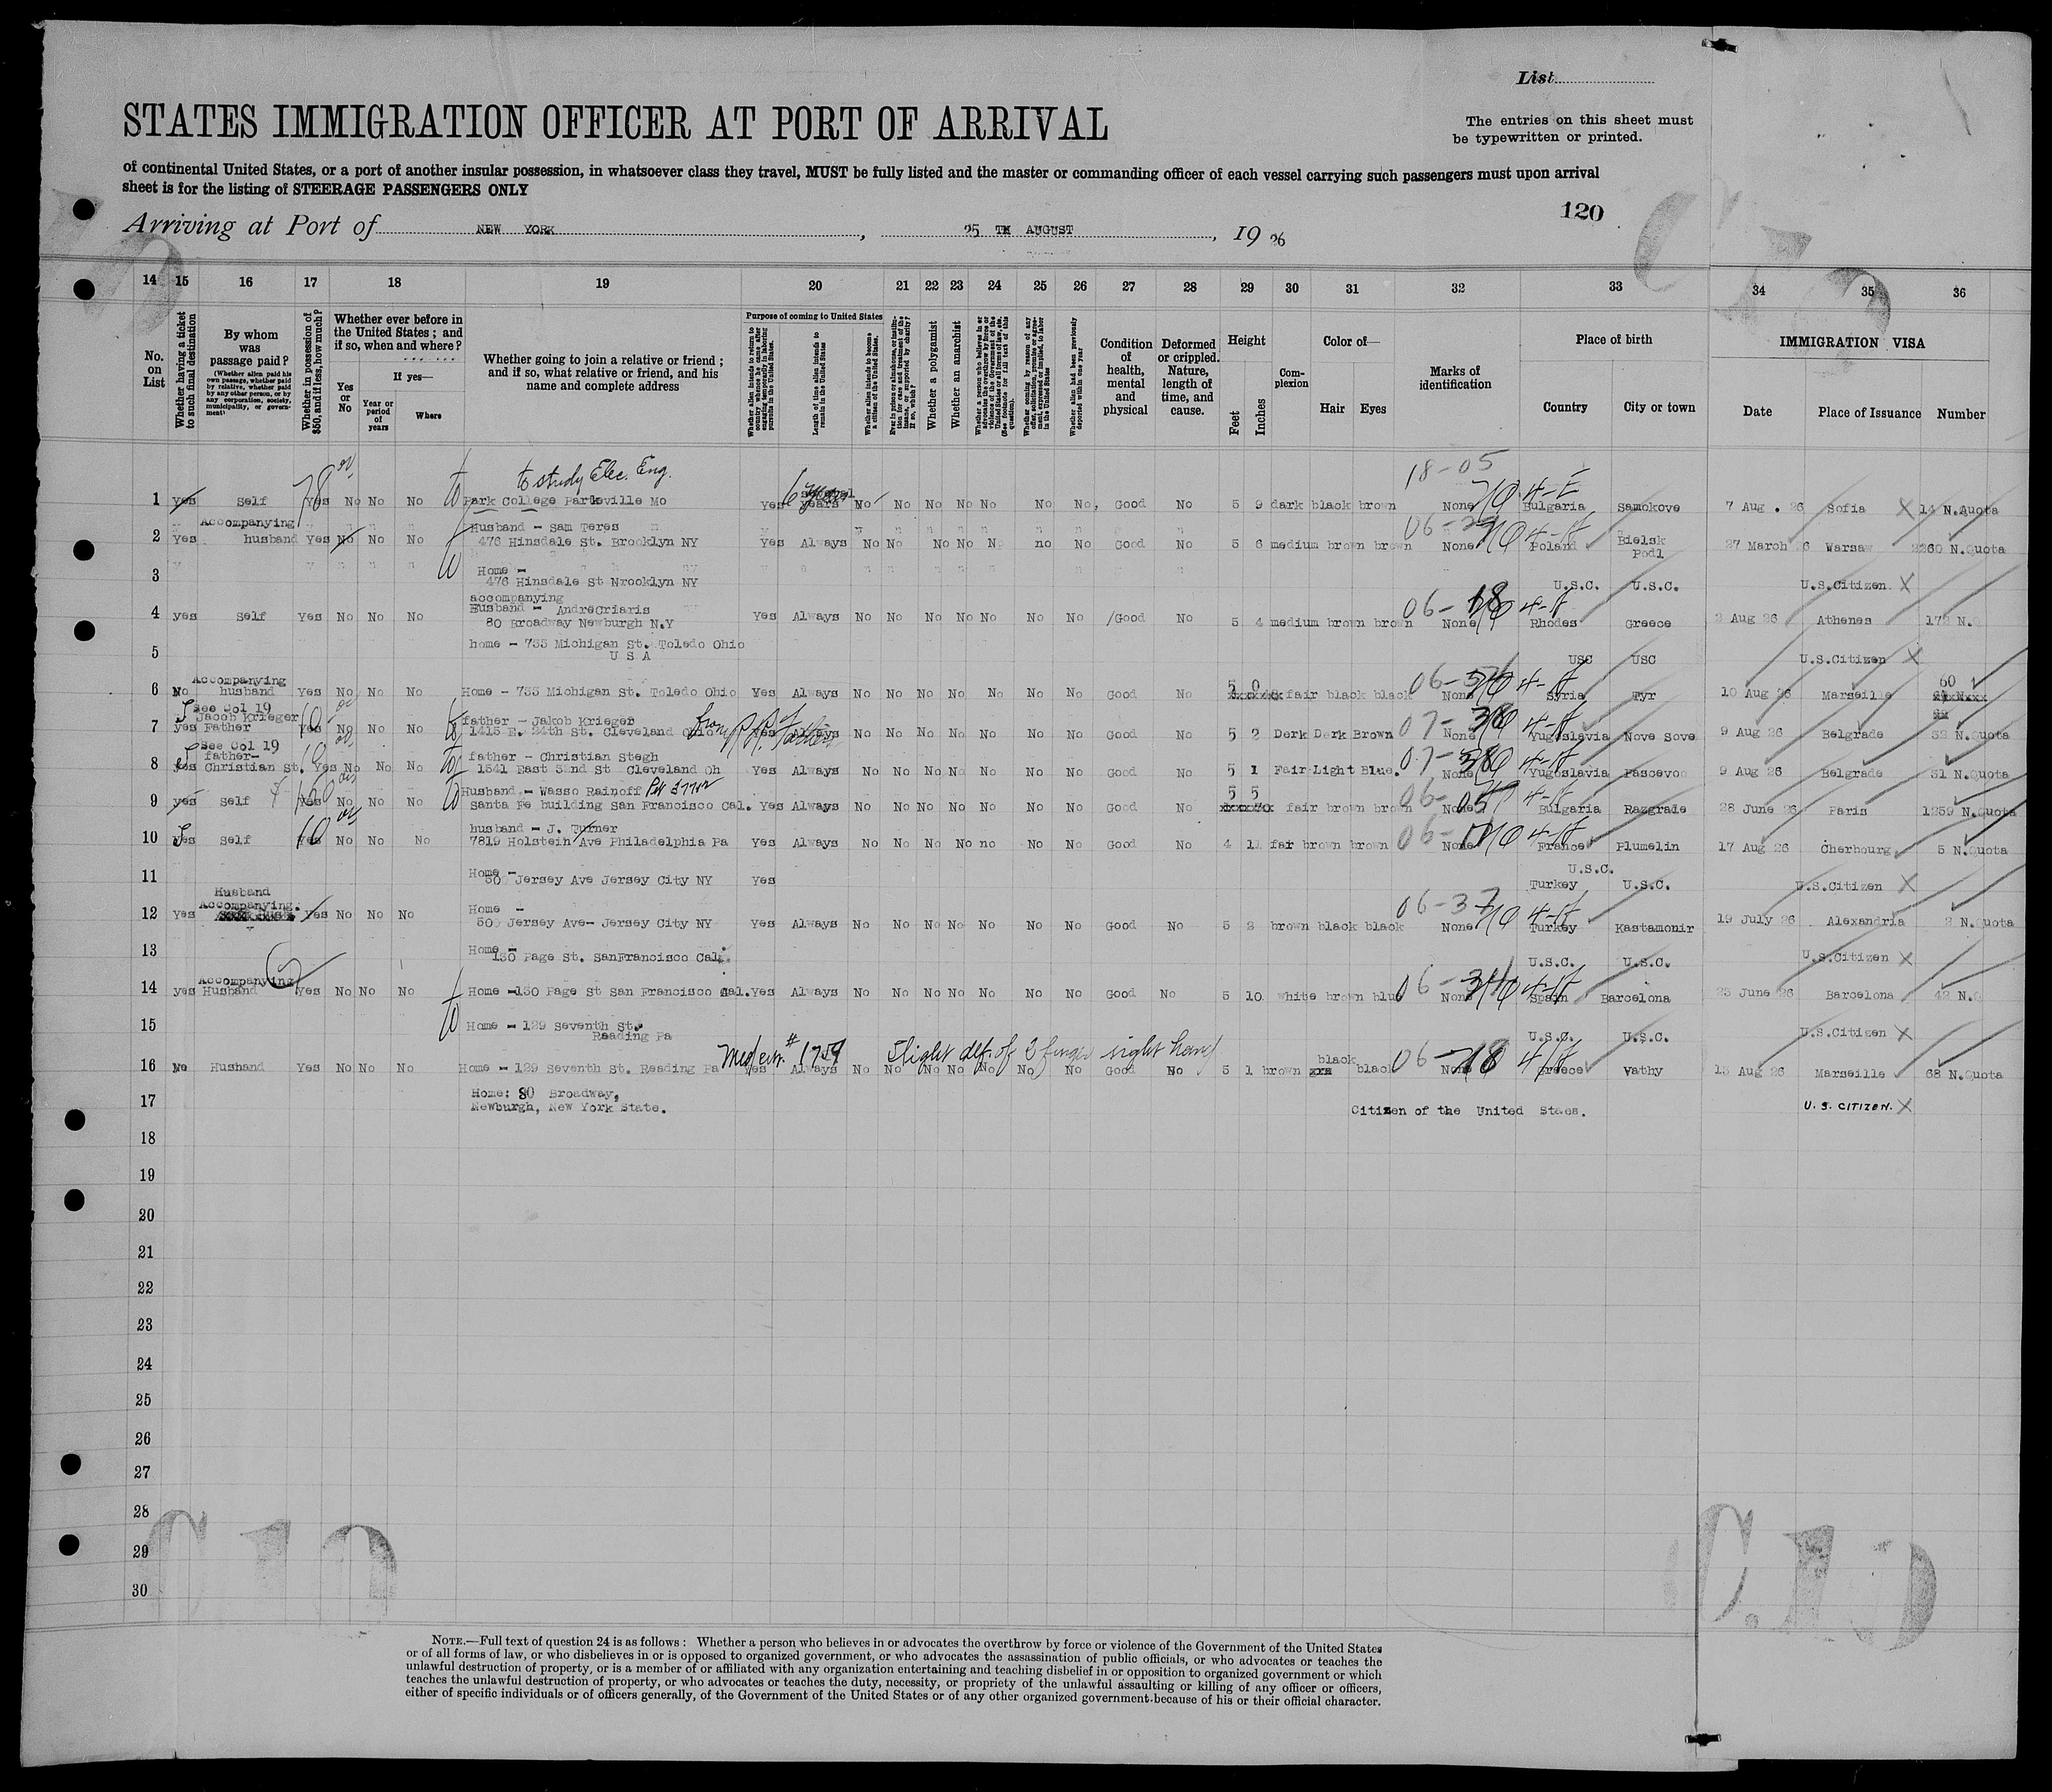 List
STATES IMMIGRATION OFFICER AT PORT OF ARRIVAL
The entries on this sheet must
be typewritten or printed.
of continental United States, or a port of another insular possession, in whatsoever class they travel, MUST be fully listed and the master or commanding officer of each vessel carrying such passengers must upon arrival
sheet is for the listing of STEERAGE PASSENGERS ONLY
120
Arriving at Port of NEW YORK, 25 TH AUGUST, 19 26
14 15 16 17 18 19 20 21 22 23 24 25 26 27 28 29 30 31 32 33 34 35 36
No. on List
Whether having a ticket to such final destination
By whom was passage paid?
(Whether alien paid his own passage, whether paid by relative, whether paid by any other person, or by any corporation, society, municipality, or government)
Whether in possession of $50, and if less, how much?
Whether ever before in the United States; and if so, when and where?
Yes or No
If yes—
Year or period of years
Where
Whether going to join a relative or friend; and if so, what relative or friend, and his name and complete address
Purpose of coming to United States
Whether alien intends to return to country whence he came after engaging temporarily in laboring pursuits in the United States.
Length of time alien intends to remain in the United States
Whether alien intends to become a citizen of the United States.
Ever in prison or almshouse, or institution for care and treatment of the insane, or supported by charity? If so, which?
Whether a polygamist
Whether an anarchist
Whether coming by reason of any offer, solicitation, promise or agreement, expressed or implied, to labor in the United States
Whether alien had been previously deported within one year
Condition of health, mental and physical
Deformed or crippled. Nature, length of time, and cause.
Height
Feet
Inches
Complexion
Color of—
Hair
Eyes
Marks of identification
Place of birth
Country
City or town
IMMIGRATION VISA
Date
Place of Issuance
Number
to study Elec. Eng. 18-05
1 yes Self Yes No No No Park College Parkville Mo Yes 6 years No No No No No No No, Good No 5 9 dark black brown None 4-E Bulgaria Samokove 7 Aug. 26 Sofia X 14 N.Quota
Accompanying Husband - Sam Teres
2 Yes husband Yes No No No 476 Hinsdale St. Brooklyn NY Yes Always No No No No No no No Good No 5 6 medium brown brown None Poland Bielsk Podl 27 March 26 Warsaw 2260 N.Quota
Home -
3 476 Hinsdale St Nrooklyn NY U.S.C. U.S.C. U.S.Citizen X
accompanying
Husband - AndreCriaris
4 yes Self Yes No No No 80 Broadway Newburgh N.Y Yes Always No No No No No No No /Good No 5 4 medium brown brown 06-18 None Rhodes Greece 2 Aug 26 Athenes 172 N.Q
5 home - 733 Michigan St. Toledo Ohio
U S A USC USC U.S.Citizen X
Accompanying 5 0 60
6 No husband Yes No No No Home - 733 Michigan St. Toledo Ohio Yes Always No No No No No No No Good No fair black black None Syria Tyr 10 Aug 26 Marseille
See Col 19
Jacob Krieger 10 father - Jakob Krieger
7 yes Father Yes No No No 1415 E. 24th St. Cleveland Ohio Yes Always No No No No No No No Good No 5 2 Derk Derk Brown None Yugoslavia Nove Sove 9 Aug 26 Belgrade 32 N.Quota
See Col 19
father- father - Christian Stegh
8 yes Christian St. Yes No No No 1541 East 32nd St Cleveland Oh Yes Always No No No No No No No Good No 5 1 Fair Light Blue. None Yugoslavia Pascevo 9 Aug 26 Belgrade 31 N.Quota
Husband - Wasso Rainoff 5 5
9 yes Self Yes No No No Santa Fe building San Francisco Cal. Yes Always No No No No No No No Good No fair brown brown None Bulgaria Razgrade 28 June 26 Paris 1259 N.Quota
husband - J. Turner
10 Yes Self Yes No No No 7819 Holstein Ave Philadelphia Pa Yes Always No No No No no No No Good No 4 11 fair brown brown None France Plumelin 17 Aug 26 Cherbourg 5 N.Quota
Home - U.S.C.
11 500 Jersey Ave Jersey City NY Yes Turkey U.S.C. U.S.Citizen X
Husband
Accompanying. Home - 06-37
12 Yes Yes No No No 500 Jersey Ave- Jersey City NY Yes Always No No No No No No No Good No 5 2 brown black black None Turkey Kastamonir 19 July 26 Alexandria 2 N.Quota
Home -
13 130 Page St. SanFrancisco Cal. U.S.C. U.S.C. U.S.Citizen X
Accompanying
14 yes Husband Yes No No No Home -130 Page St San Francisco Cal. Yes Always No No No No No No No Good No 5 10 white brown blu None Spain Barcelona 23 June 26 Barcelona 42 N.Q
15 Home - 129 Seventh St.
Reading Pa U.S.C. U.S.C. U.S.Citizen X
Med cert. # 1759 Slight def. of 3 finger right hand
16 No Husband Yes No No No Home - 129 Seventh St. Reading Pa Yes Always No No No No No No No Good No 5 1 brown black black None Greece Vathy 13 Aug 26 Marseille 68 N.Quota
17 Home: 80 Broadway,
Newburgh, New York State. Citizen of the United Staes. U.S. CITIZEN. X
18
19
20
21
22
23
24
25
26
27
28
29
30
C 10 C.10
NOTE.—Full text of question 24 is as follows: Whether a person who believes in or advocates the overthrow by force or violence of the Government of the United States
or of all forms of law, or who disbelieves in or is opposed to organized government, or who advocates the assassination of public officials, or who advocates or teaches the
unlawful destruction of property, or is a member of or affiliated with any organization entertaining and teaching disbelief in or opposition to organized government or which
teaches the unlawful destruction of property, or who advocates or teaches the duty, necessity, or propriety of the unlawful assaulting or killing of any officer or officers,
either of specific individuals or of officers generally, of the Government of the United States or of any other organized government because of his or their official character.